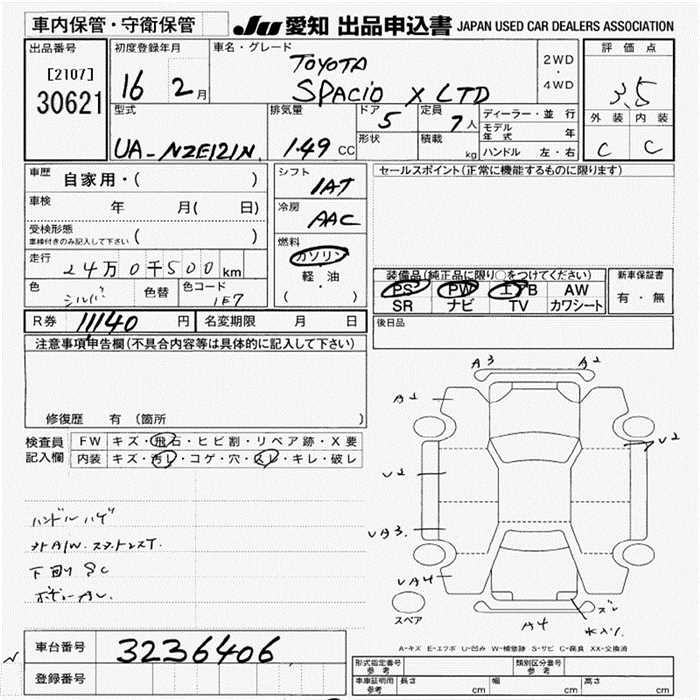 車内保管・守衛保管 JU 愛知 出品申込書 JAPAN USED CAR DEALERS ASSOCIATION
出品番号 初度登録年月 車名・グレード 評価点
[2107] 16 2月 TOYOTA 2WD
30621 SPACIO X LTD 4WD 3.5
型式 排気量 ドア 5 定員 7人 ディーラー・並行 外装 内装
UA-NZE121N 1.49 CC 形状 積載 kg モデル年式 年 C C
ハンドル 左・右
車歴 自家用・( ) シフト 1AT セールスポイント(正常に機能するものに限ります)
車検 年 月( 日) 冷房 AAC
受検形態 ( )
車検付きのみ記入して下さい
燃料 ガソリン
軽・油
( )
走行 24万0千500km
装備品(純正品に限り○をつけてください) 新車保証書
色 シルバー 色替 色コード 1E7
PS PW エアB AW 有・無
SR ナビ TV カワシート
R券 11140 円 名変期限 月 日 後日品
注意事項申告欄(不具合内容等は具体的に記入して下さい)
修復歴 有 (箇所 )
検査員 FW キズ・飛石・ヒビ割・リペア跡・X要
記入欄 内装 キズ・汚レ・コゲ・穴・スレ・キレ・破レ
ハンドルハゲ
下回りSC
A3 A2
A1
U2
U2
UA3
UA4
A4
スレ
スペア
A-キズ E-エクボ U-凹み W-補修跡 S-サビ C-腐食 XX-交換済
車台番号 3236406
登録番号
形式指定番号 参考 類別区分番号 参考
車庫証明用 参考 長さ cm 幅 cm 高さ cm